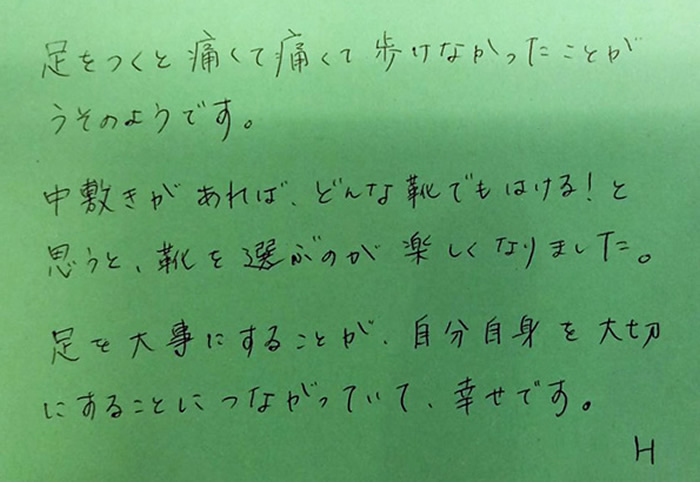 足をつくと痛くて痛くて歩けなかったことが
うそのようです。
中敷きがあれば、どんな靴でもはける!と
思うと、靴を選ぶのが楽しくなりました。
足を大事にすることが、自分自身を大切
にすることにつながっていて、幸せです。
H